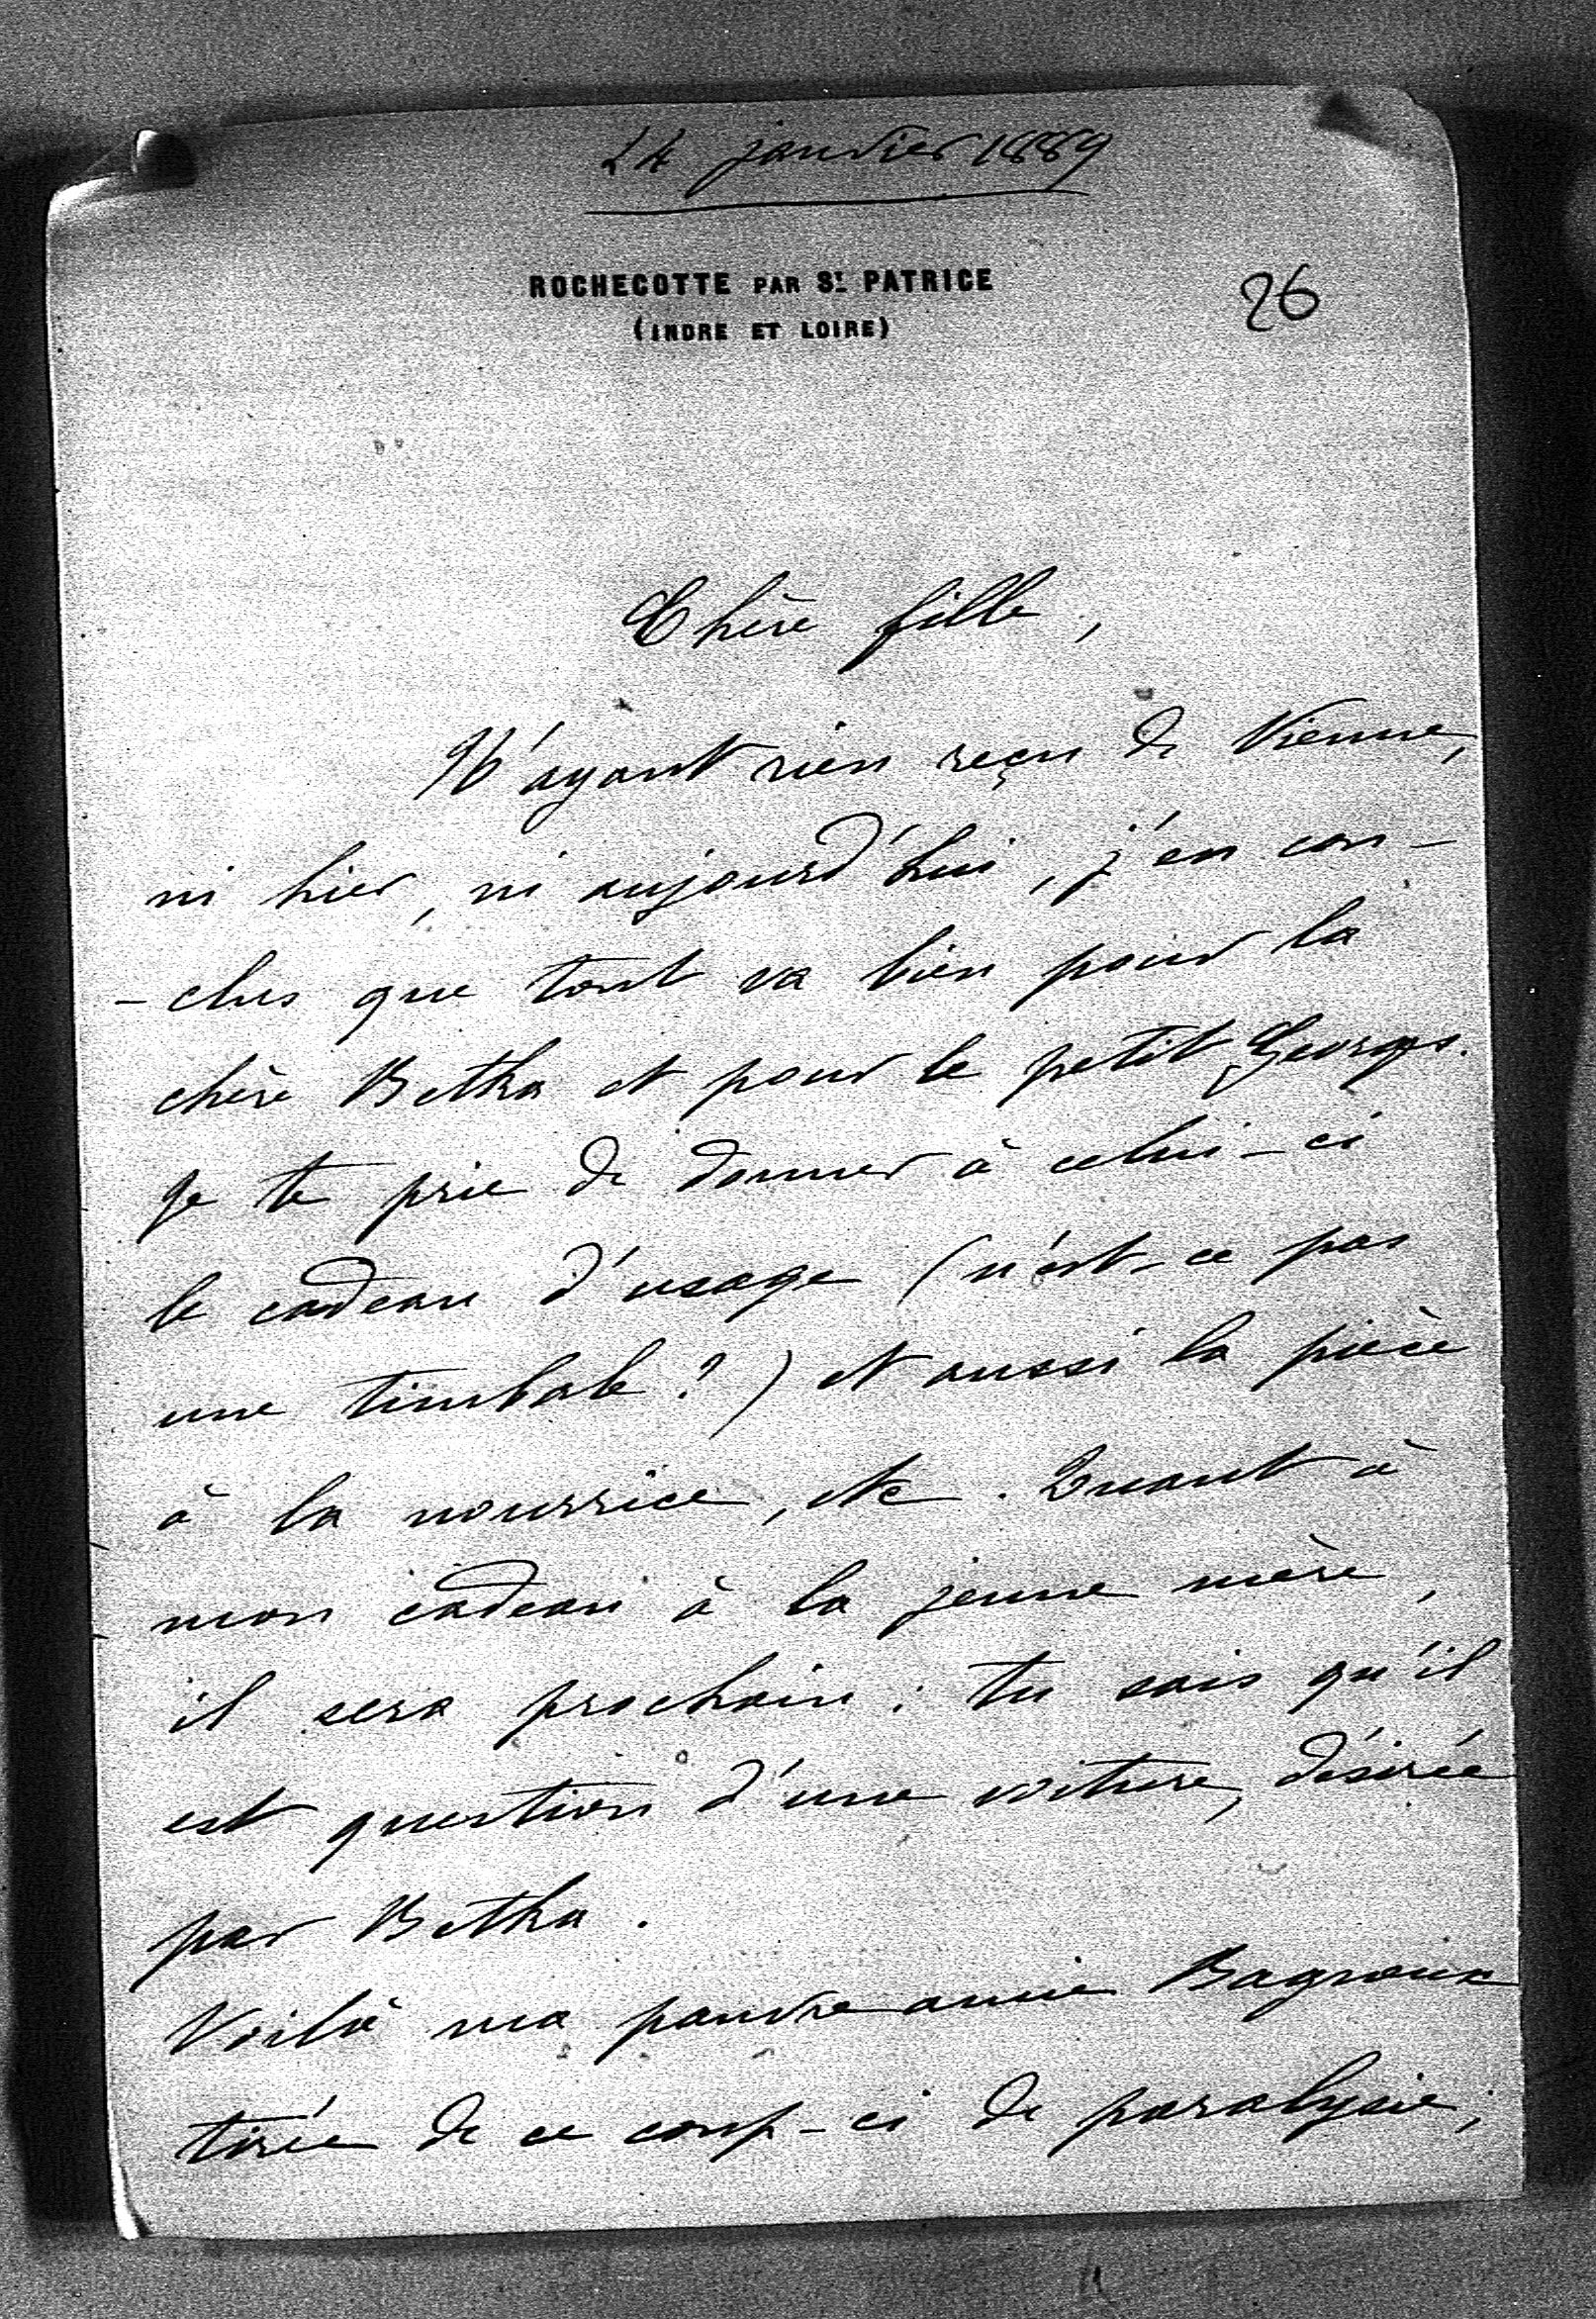 24 janvier 1889
ROCHECOTTE PAR ST PATRICE
(INDRE ET LOIRE)
26
Chère fille,
N'ayant rien reçu de Vienne,
ni hier, ni aujourd'hui, j'en con-
-clus que tout va bien pour la
chère Betka et pour le petit Georges.
Je te prie de donner à celui-ci
le cadeau d'usage (n'est-ce pas
une timbale?) et aussi la pièce
à la nourrice, etc. Quant à
mon cadeau à la jeune mère,
il sera prochain; tu sais qu'il
est question d'une voiture, désirée
par Betka.
Voilà ma pauvre amie Bagneux
tirée de ce coup-ci de paralysie;